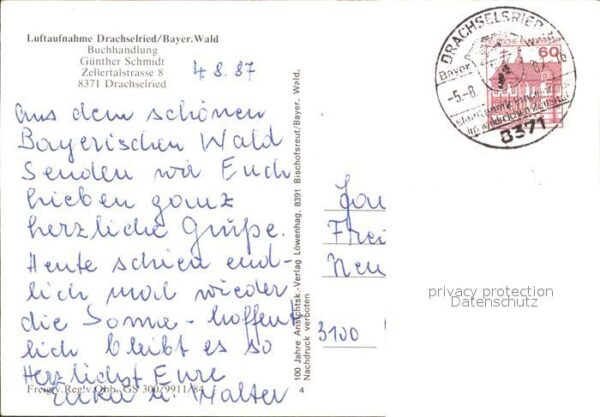 Luftaufnahme Drachselried/Bayer. Wald
Buchhandlung
Günther Schmidt
Zellertalstrasse 8
8371 Drachselried
4.8.87
Aus dem schönen
Bayerischen Wald
Senden wir Euch
lieben ganz
herzliche Grüße.
Heute schien end-
lich mal wieder
die Sonne - hoffent
lich bleibt es so
Herzlichst Eure
Erika u. Walter
Freig. d. Reg. v. Obb. GS 300/9911/84
100 Jahre Ansichtsk.-Verlag Löwenhag, 8391 Bischofsreut/Bayer. Wald.
Nachdruck verboten
4
DRACHSELSRIED
Bayer. Wald
-5.-8.
8371
60
Frei
Neu
3100
privacy protection
Datenschutz